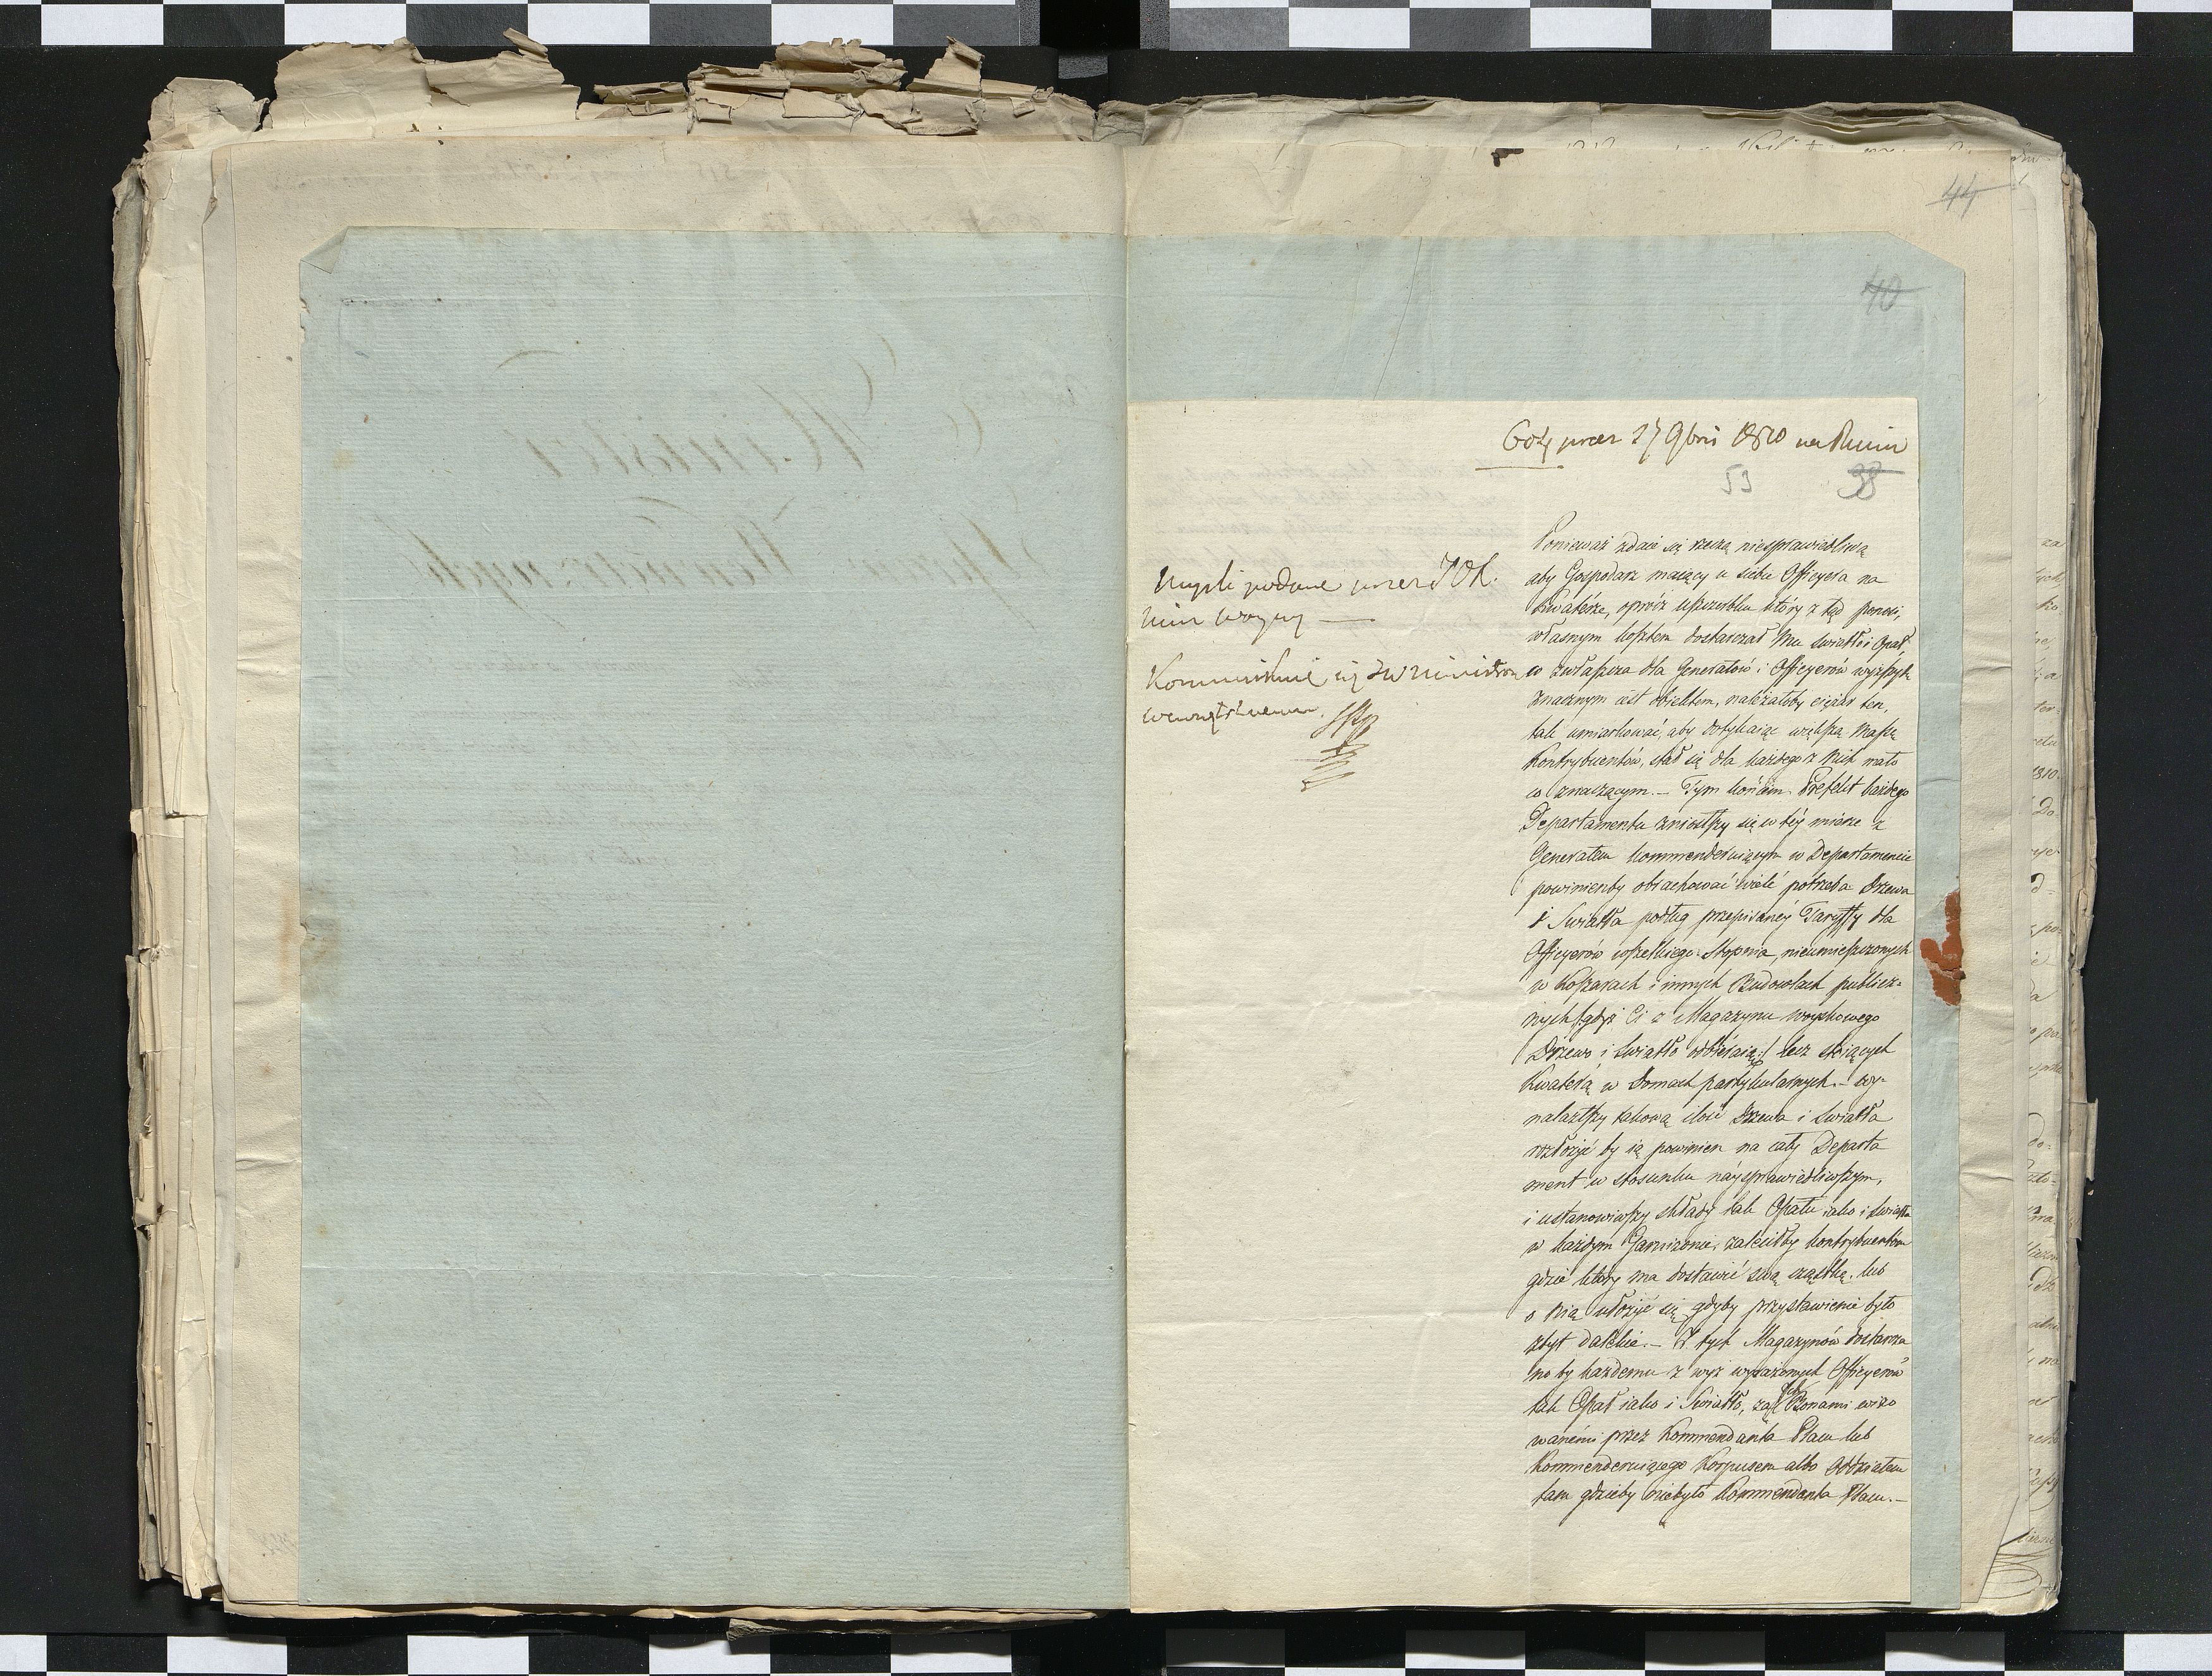 44
40
27 9bris 1810
53 38
Myśli podane przez
Min Woyny —
Kommunikuie się
Ponieważ zdaie się rzeczą niesprawiedliwą
aby Gospodarz maiący u siebie Officyera na
Kwatérze, oprócz uszczerbku który z tąd ponosi,
własnym kosztem dostarczał Mu światło i Opał,
co zwłaszcza dla Generałów i Officyerów wyższych
znacznym iest obiektem, należałoby ciężar ten,
tak umiarkować, aby dotykaiąc większą Massę
Kontrybuentów, stał się dla każdego z Nich mało
co znaczącym.— Tym końcem Prefekt każdego
Departamentu zniosłszy się w téy mierze z
Generałem kommenderuiącym w Departamencie
powinienby obrachować wiele potrzeba Drzewa
i Swiatła podług przepisanéy Taryffy dla
Officyerów wszelkiego Stopnia, nieumieszczonych
w Koszarach i innych Budowlach publicz-
nych /:gdyż Ci z Magazynu woyskowego
Drzewo i Swiatło odbieraią:/ lecz stoiących
Kwaterą w Domach partykularnych.— wy-
nalazłszy takową ilość Drzewa i Swiatła
rozłożyć by ią powinien na cały Departa
ment w stosunku nayśprawiedliwszym,
i ustanowiwszy składy tak Opału iako i Swiatła
w każdym Garnizonie, zaleciłby kontrybuentom
gdzie który ma dostawić swą cząstkę, lub
o nią ułożyć się gdyby przystawienie było
zbyt dalekie.— Z tych Magazynów dostarcza
no by każdemu z wyż wyrażonych Officyerów
tak Opał iako i Swiatło, za Bonami wizo
wanémi przez Kommendanta Placu lub
Kommenderuiącego Korpusem albo Oddziałem
tam gdzieby niebyło Kommendanta Placu.—